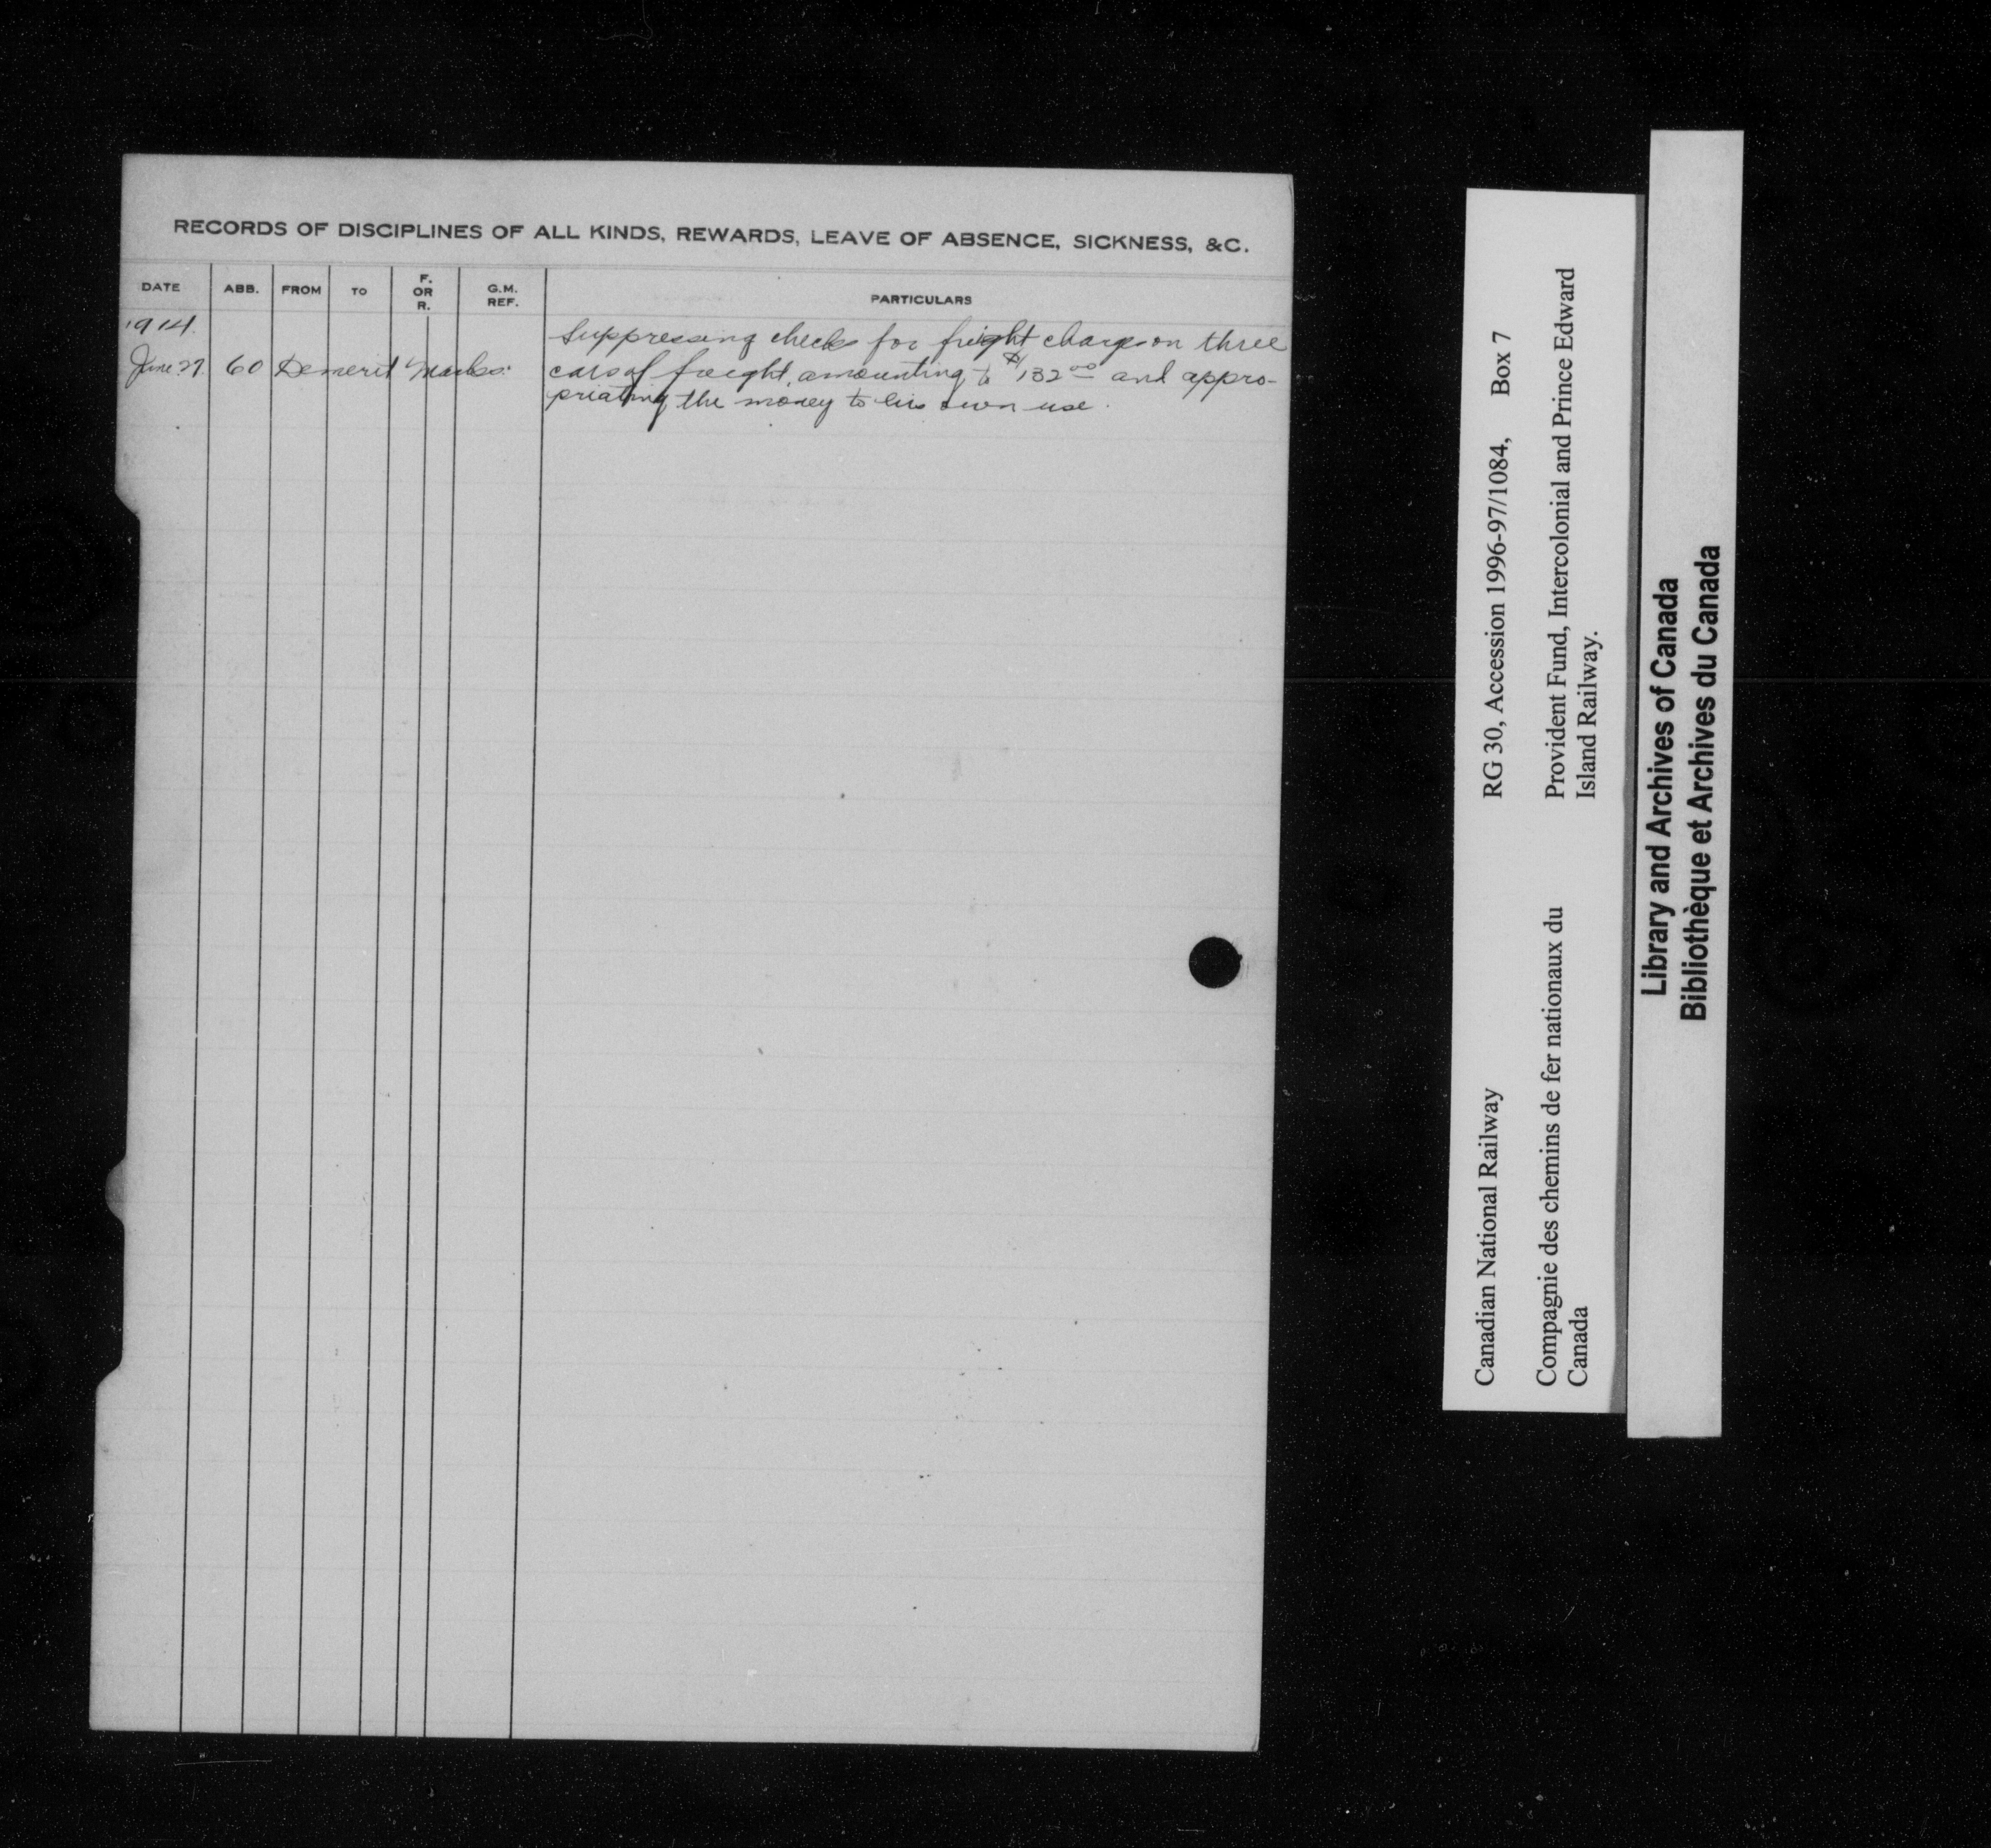 RECORDS OF DISCIPLINES OF ALL KINDS, REWARDS, LEAVE OF ABSENCE, SICKNESS, &C.
DATE ABB. FROM TO F. OR R. G.M. REF. PARTICULARS
1914.
June 27. 60 Demerit Marks.
Suppressing checks for freight charges on three
cars of freight, amounting to $132 00 and appro-
priating the money to his own use.
Canadian National Railway RG 30, Accession 1996-97/1084, Box 7
Compagnie des chemins de fer nationaux du Provident Fund, Intercolonial and Prince Edward
Canada Island Railway.
Library and Archives of Canada
Bibliothèque et Archives du Canada